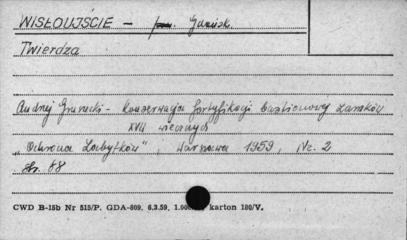 WISŁOUJŚCIE - pow. Gdańsk.
Twierdza
Andrzej Gruszecki - konserwacja fortyfikacji bastionowej zamków
XVII wiecznych
„Ochrona Zabytków", Warszawa 1959, Nr. 2
str. 88
CWD B-15b Nr 515/P. GDA-809. 6.3.59. karton 180/V.